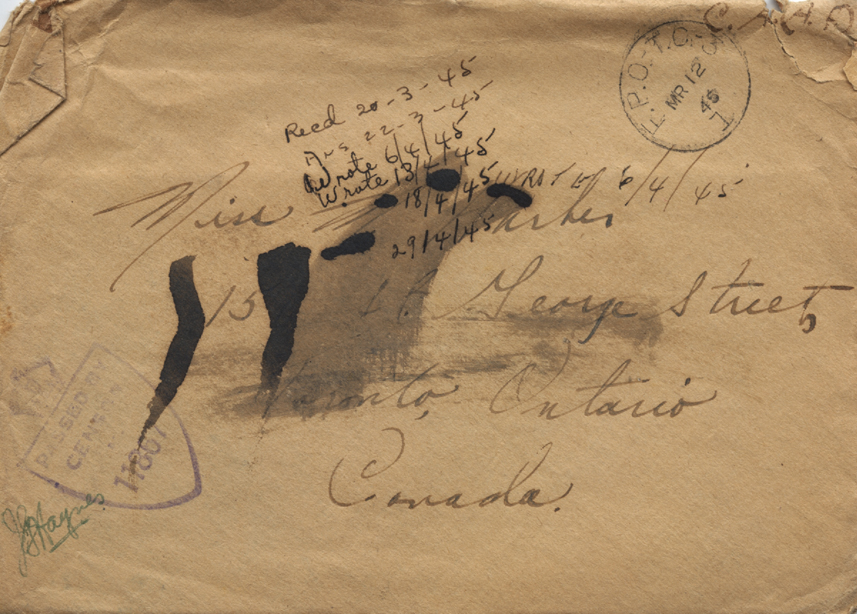 C.A.P.O.
P.O.T.C.
MR 12
45
Recd 20-3-45
Ans 22-3-45
Wrote 6/4/45
Wrote 13/4/45
18/4/45 WROTE 6/4/45
29/4/45
Miss
15 St. George Street,
Toronto, Ontario
Canada.
PASSED BY
CENSOR
11807
Haynes